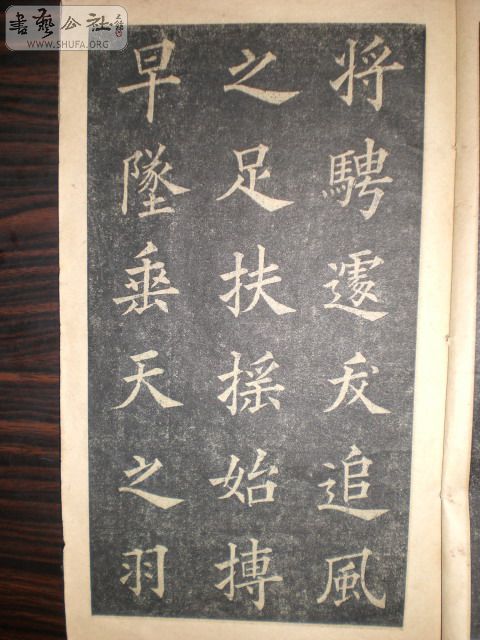 書藝公社
WWW.SHUFA.ORG
将騁遽夭追風
之足扶搖始摶
早墜垂天之羽